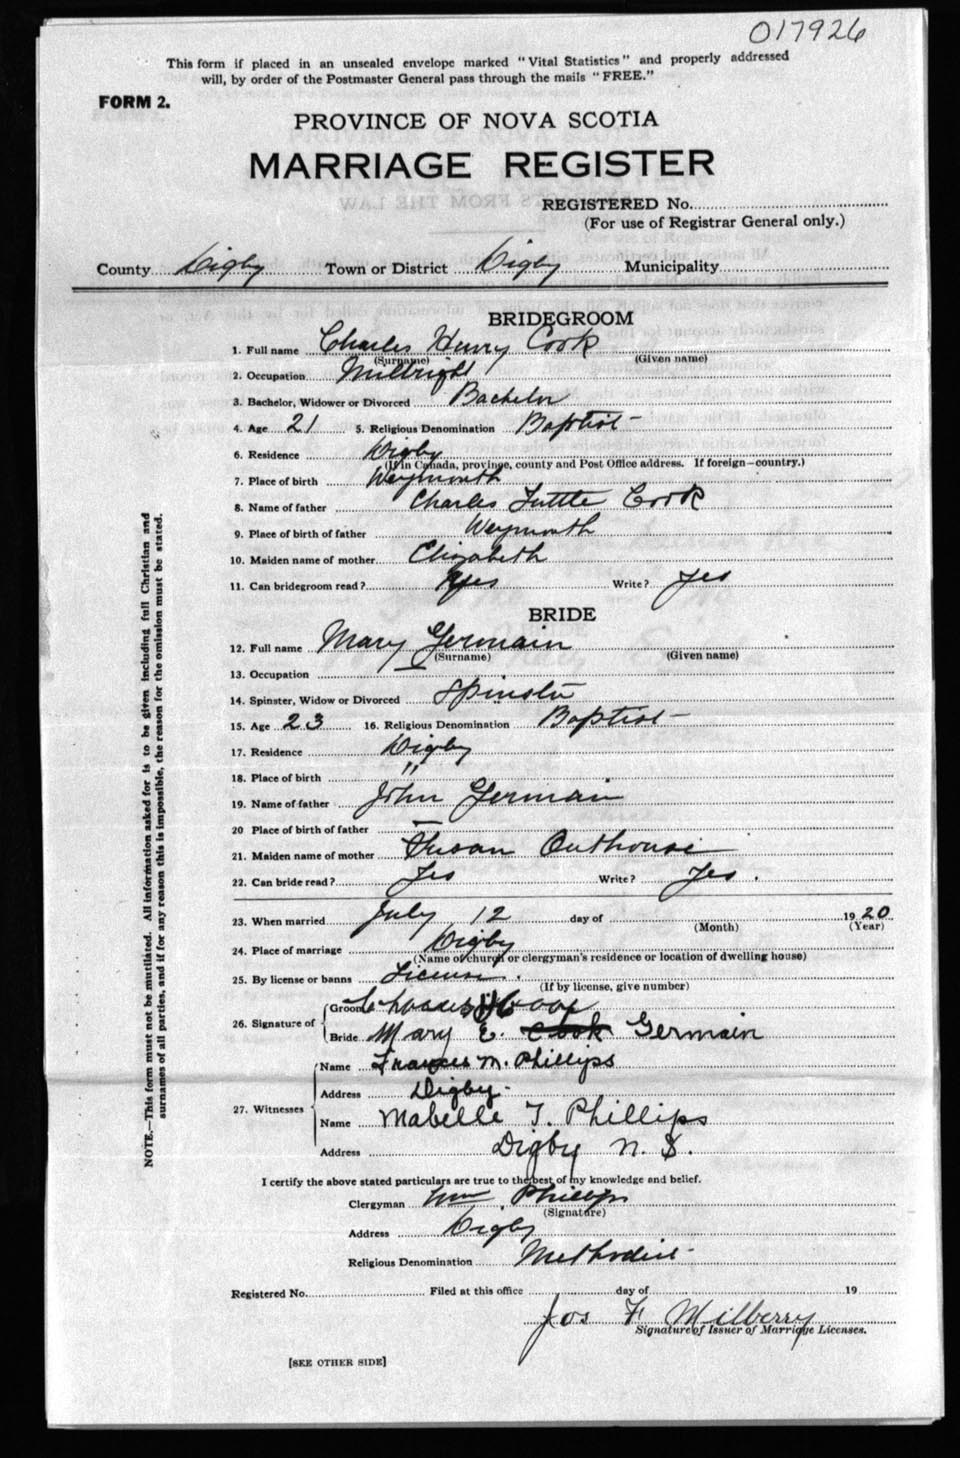 017926
This form if placed in an unsealed envelope marked "Vital Statistics" and properly addressed
will, by order of the Postmaster General pass through the mails "FREE."
FORM 2.
PROVINCE OF NOVA SCOTIA
MARRIAGE REGISTER
REGISTERED No.
(For use of Registrar General only.)
County Digby Town or District Digby Municipality
BRIDEGROOM
1. Full name Charles Henry Cook
(Surname) (Given name)
2. Occupation Millright
3. Bachelor, Widower or Divorced Bachelor
4. Age 21 5. Religious Denomination Baptist
6. Residence Digby
(If in Canada, province, county and Post Office address. If foreign—country.)
7. Place of birth Weymouth
8. Name of father Charles Tuttle Cook
9. Place of birth of father Weymouth
10. Maiden name of mother Elizabeth
11. Can bridegroom read? Yes Write? Yes
BRIDE
12. Full name Mary Germain
(Surname) (Given name)
13. Occupation —
14. Spinster, Widow or Divorced Spinster
15. Age 23 16. Religious Denomination Baptist
17. Residence Digby
18. Place of birth "
19. Name of father John Germain
20 Place of birth of father —
21. Maiden name of mother Susan Outhouse
22. Can bride read? Yes Write? Yes.
23. When married July 12 day of 1920
(Month) (Year)
24. Place of marriage Digby
(Name of church or clergyman's residence or location of dwelling house)
25. By license or banns License.
(If by license, give number)
26. Signature of Groom Charles H Cook
Bride Mary E. Cook Germain
27. Witnesses Name Frances M. Phillips
Address Digby.
Name Mabelle T. Phillips
Address Digby N. S.
I certify the above stated particulars are true to the best of my knowledge and belief.
Clergyman Wm. Phillips
(Signature)
Address Digby
Religious Denomination Methodist
Registered No. Filed at this office day of 19
Jos F. Milberry
Signature of Issuer of Marriage Licenses.
[SEE OTHER SIDE]
NOTE.—This form must not be mutilated. All information asked for is to be given including full Christian and
surnames of all parties, and if for any reason this is impossible, the reason for the omission must be stated.